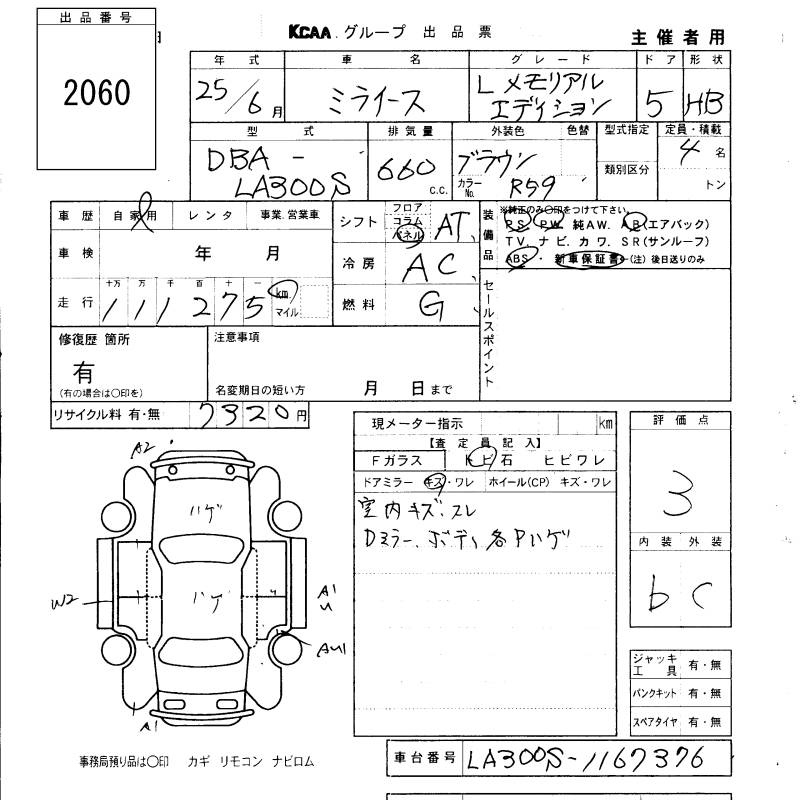 出品番号
2060
KCAA グループ 出品票
主催者用
年式 車名 グレード ドア 形状
25/6月 ミライース Lメモリアルエディション 5 HB
型式 排気量 外装色 色替 型式指定 定員・積載
DBA - LA300S 660 c.c. ブラウン カラーNo. R59 類別区分 4名 トン
車歴 自家用 レンタ 事業.営業車
シフト フロア コラム パネル AT
装備品 ※純正のみ○印をつけて下さい。
PS. PW. 純AW. AB(エアバック)
TV. ナビ. カワ. SR(サンルーフ)
ABS・ 新車保証書←(注) 後日送りのみ
車検 年 月
冷房 AC
走行 十万 万 千 百 十 一
111275 km マイル
燃料 G
セールスポイント
修復歴 箇所
有
(有の場合は○印を)
注意事項
名変期日の短い方 月 日まで
リサイクル料 有・無 7320円
現メーター指示 km
【査定員記入】
Fガラス トビ石 ヒビワレ
ドアミラー キズ・ワレ ホイール(CP) キズ・ワレ
室内キズ.スレ
Dミラー.ボディ各Pハゲ
評価点
3
内装 外装
b C
A2
ハゲ
ハゲ
W2
A1
U
AU1
A1
ジャッキ工具 有・無
パンクキット 有・無
スペアタイヤ 有・無
事務局預り品は○印 カギ リモコン ナビロム
車台番号 LA300S-1167376